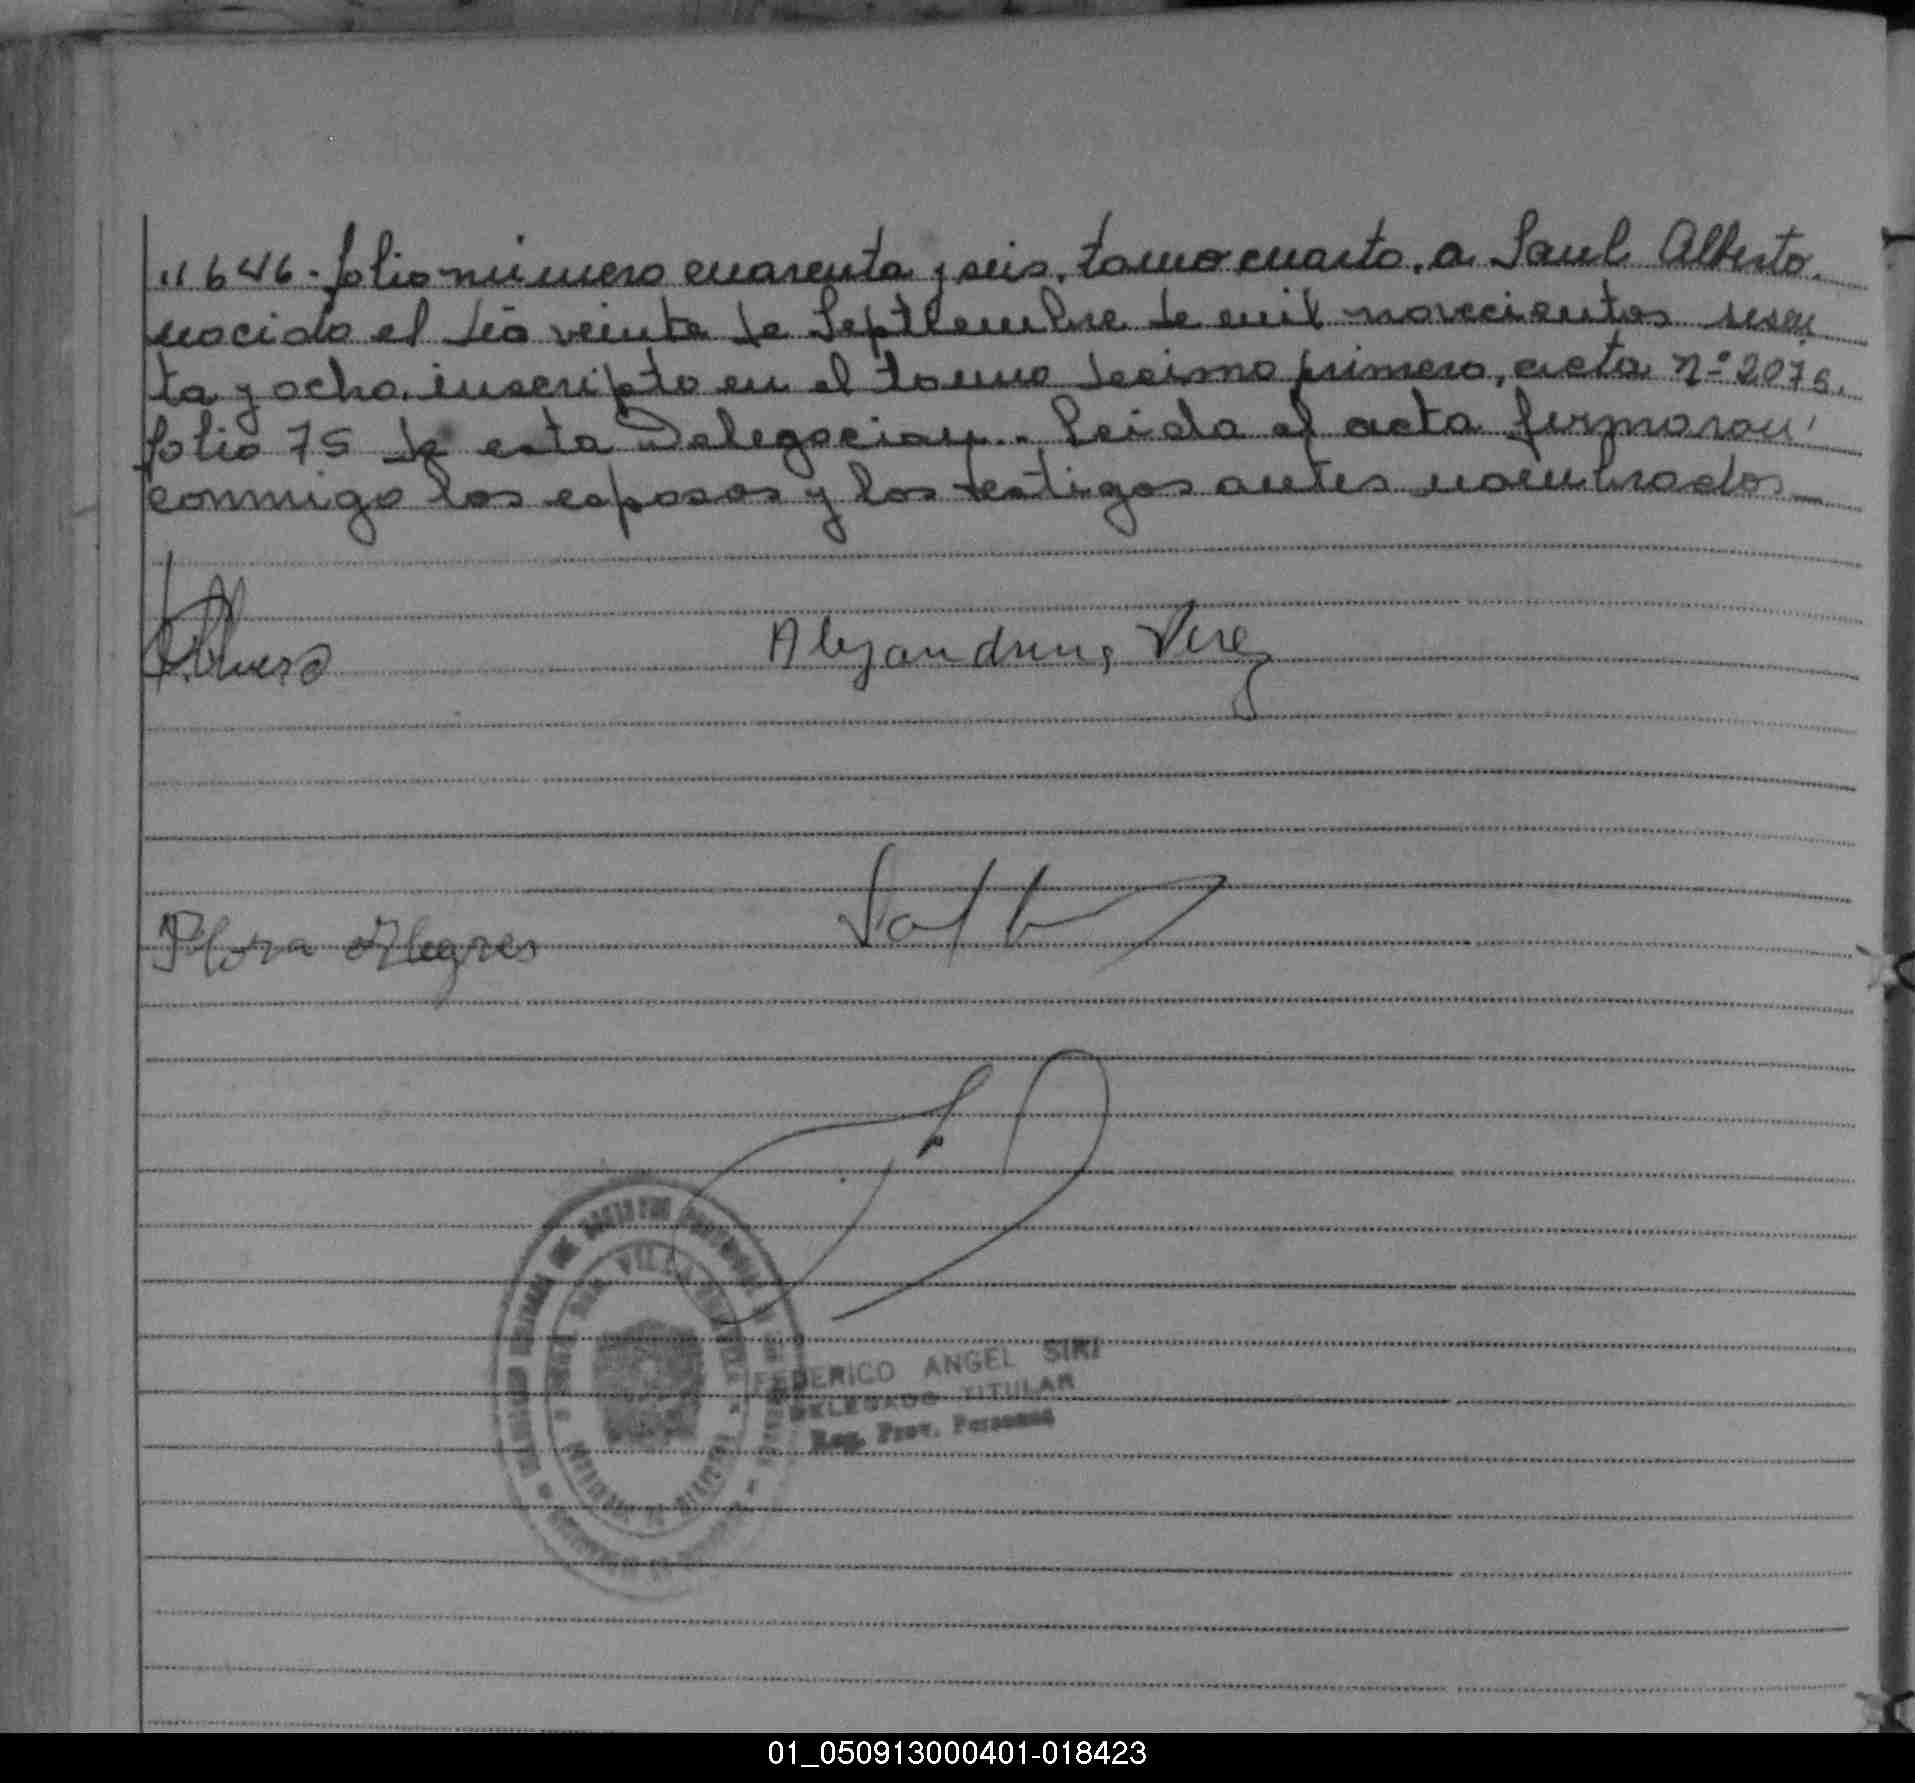 " 646. folio número cuarenta y seis, tomo cuarto, a Saul Alberto.
nacido el día veinte de Septiembre de mil novecientos sesen
ta y ocho. inscripto en el tomo decimo primero, acta nº 2075.
folio 75 de esta Delegacion.. Leida el acta firmaron
conmigo los esposos y los testigos antes nombrados
Alejandrina Vera
Flora Alegres
FEDERICO ANGEL SIRI
DELEGADO TITULAR
Reg. Prov. Personas
01_050913000401-018423